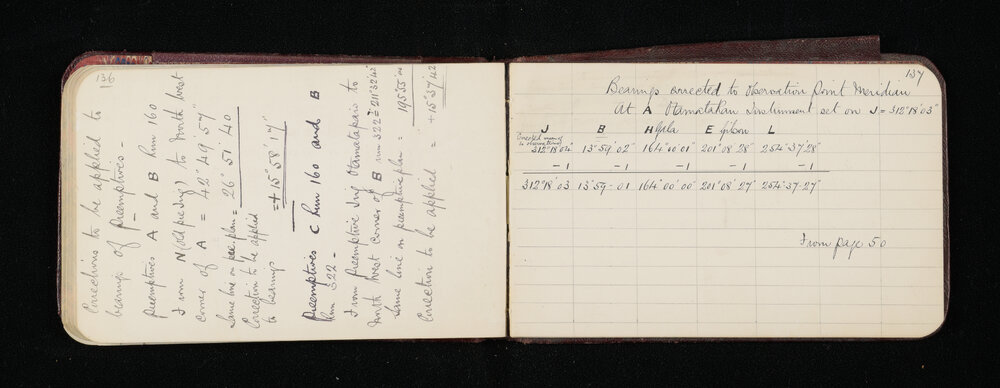 136
Corrections to be applied to
bearings of Preemptives -
Preemptives A and B Run 160
From N (old pre Trig) to North West
Corner of A = 42° 49' 57"
Same line on pre. plan = 26° 51' 40"
Correction to be applied
to bearings = + 15° 58' 17"
Preemptives C Run 160 and B
Run 322 -
From Preemptive Trig Otamatakau to
North West Corner of B run 322 = 211° 32' 42"
Same line on preemptive plan = 195 55 00
Correction to be applied = + 15° 37' 42"
137
Bearings corrected to Observation Point Meridian
At A Otamatakau Instrument set on J = 312° 18' 03"
J B H E Gibson L
Corrected mean of
312° 18' 04" 13° 59' 02" 164° 00' 01" 201° 08' 28" 254° 37' 28"
-1 -1 -1 -1 -1
312° 18' 03 13° 59 - 01 164° 00' 00" 201° 08' 27" 254° 37 - 27"
From page 50